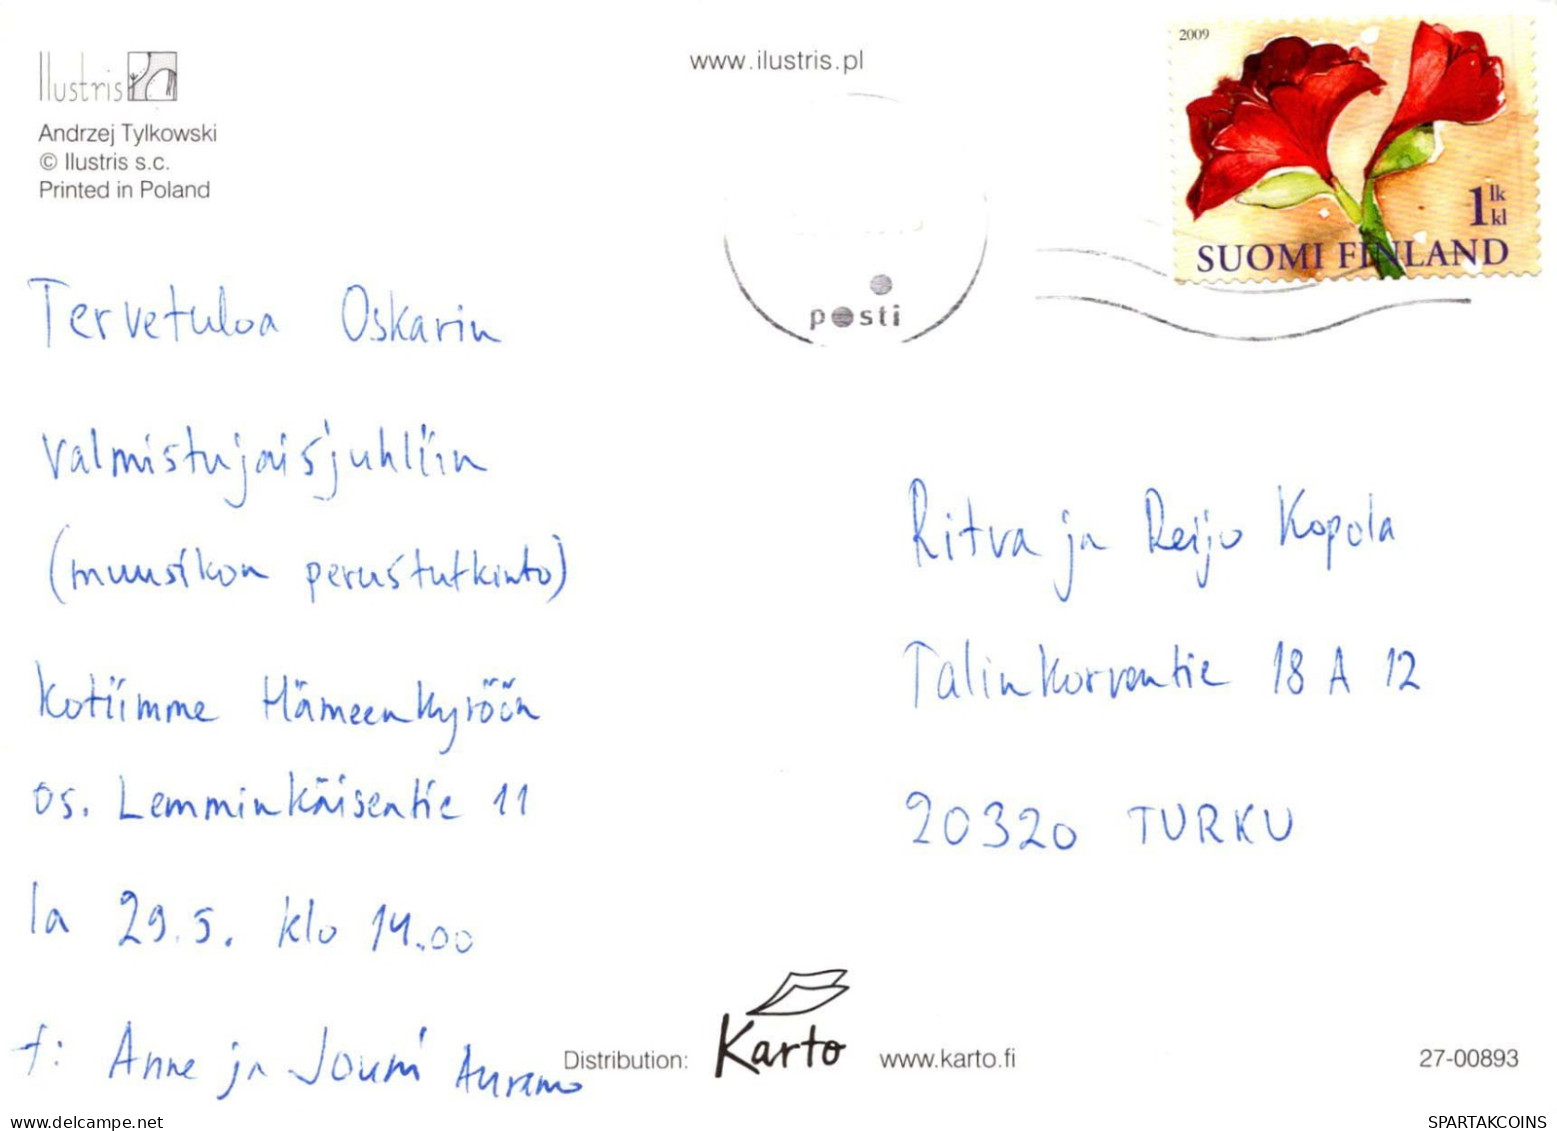 Ilustris
Andrzej Tylkowski
© Ilustris s.c.
Printed in Poland
www.ilustris.pl
2009
1 lk
kl
SUOMI FINLAND
posti
Tervetuloa Oskarin
valmistujaisjuhliin
(muusikon perustutkinto)
kotiimme Hämeenkyröön
os. Lemminkäisentie 11
la 29.5. klo 14.00
t: Anne ja Jouni Auramo
Ritva ja Reijo Kopola
Talinkorventie 18 A 12
20320 TURKU
Distribution: Karto www.karto.fi
27-00893
www.delcampe.net
SPARTAKCOINS